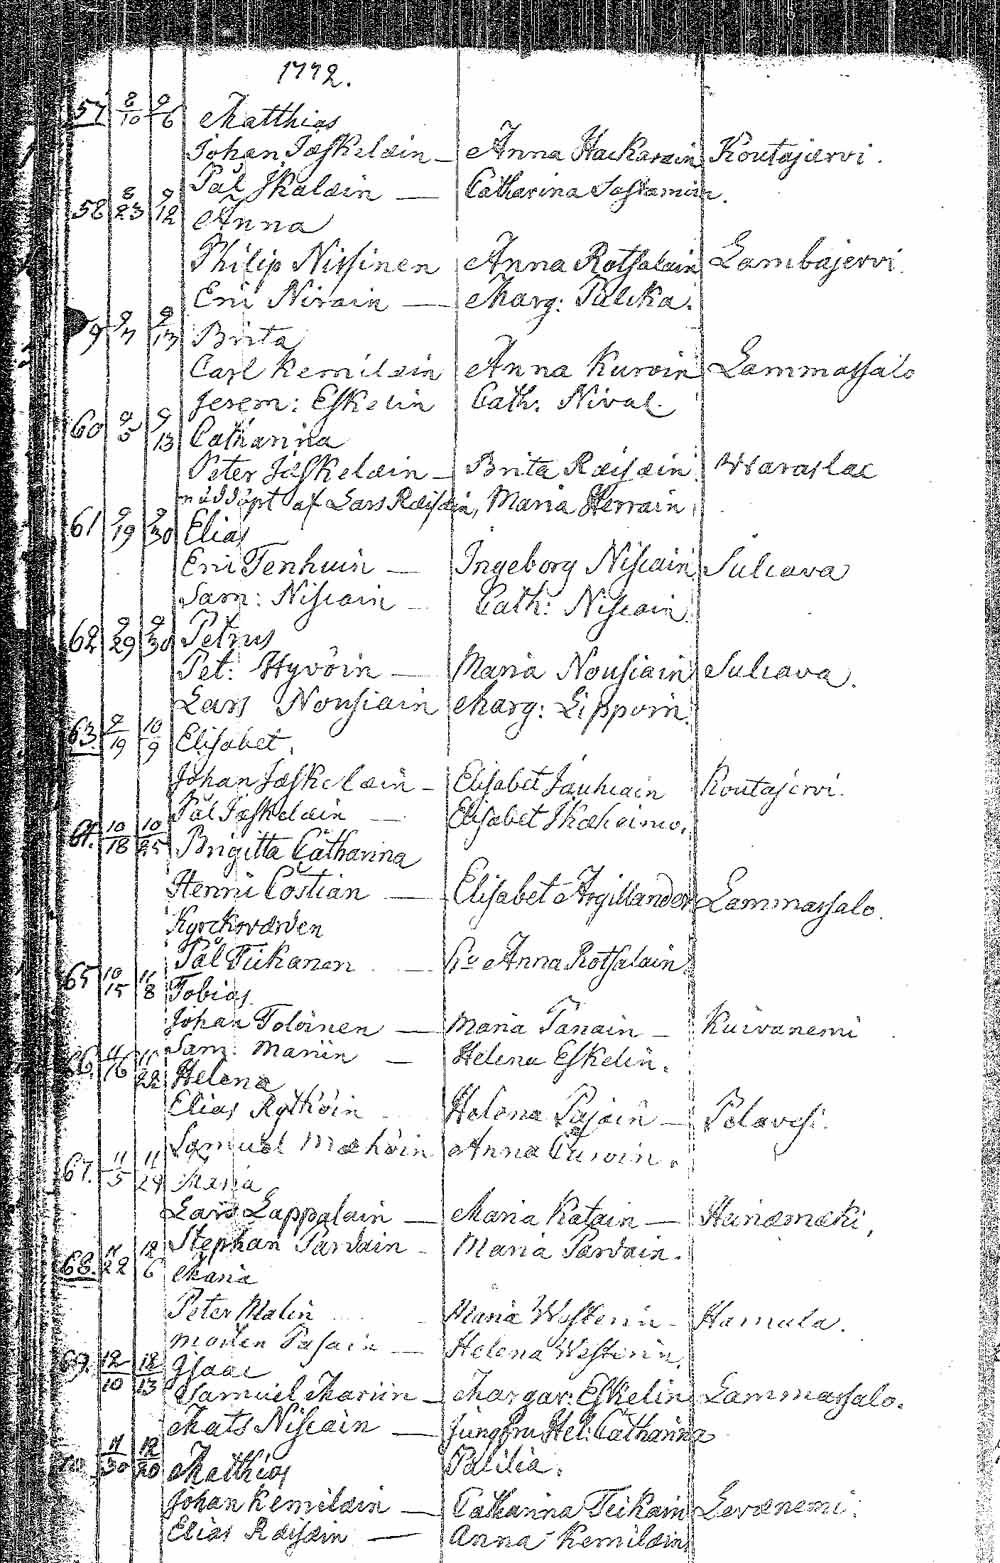 1772.
57 8/10 9/6 Matthias
Johan Jæskelæin – Anna Hackarain Koutajærvi.
Pål Ikalain – Catharina Sastamoin.
58 8/23 9/12 Anna
Philip Nissinen Anna Rotsalain Lambajervi.
Eric Nirain – Marg: Pulcka.
9 9/7 9/13 Brita
Carl Kemilæin Anna Kurvin Lammassalo
Jerem: Eskelin Cath. Nival.
60 9/5 9/13 Catharina
Peter Jæskelæin – Brita Ræisæin Waraslax
nöddöpt af Lars Ræisæin, Maria Herrain
61 9/19 9/30 Elias
Eric Tenhuin – Ingeborg Niscain Sulcava
Sam: Niscain – Cath: Niscain
62 9/29 9/30 Petrus
Pet: Hyvöin – Maria Nousiain Sulcava.
Lars Nousiain Marg: Lippoin.
63. 9/19 10/9 Elisabet.
Johan Jæskelæin – Elisabet Jauhiain Koutajervi.
Pål Jæskelæin – Elisabet
64. 10/18 10/25 Brigitta Catharina
Henric Costian – Elisabet Argillander Lammassalo.
Kyrckoværden
Pål Tickanen – Hu Anna Rotsalain
65 10/15 11/8 Tobias.
Johan Tolöinen – Maria Tanain – Kuivanemi
Sam: Manin – Helena Eskelin.
66. 11/16 11/22 Helena
Elias Rytköin Helena Pasain – Pelavesi.
Samuel Mæhöin Anna Curvin.
67. 11/5 11/29 Maria
Lars Lappalain – Maria Katain – Heinæmæki,
Stephan Parvain – Maria Parvain.
68. 11/22 12/6 Maria
Peter Malin – Maria Westerin – Hamula.
Morten Pasain – Helena Westerin.
69. 12/10 12/13 Isaac
Samuel Mariin – Margar: Eskelin Lammassalo.
Mats Niscain – Jungfru Hel: Catharina
Palilia.
70 11/30 12/20 Matthias
Johan Kemilæin – Catharina Tickain Levænemi.
Elias Ræisæin – Anna Kemilæin